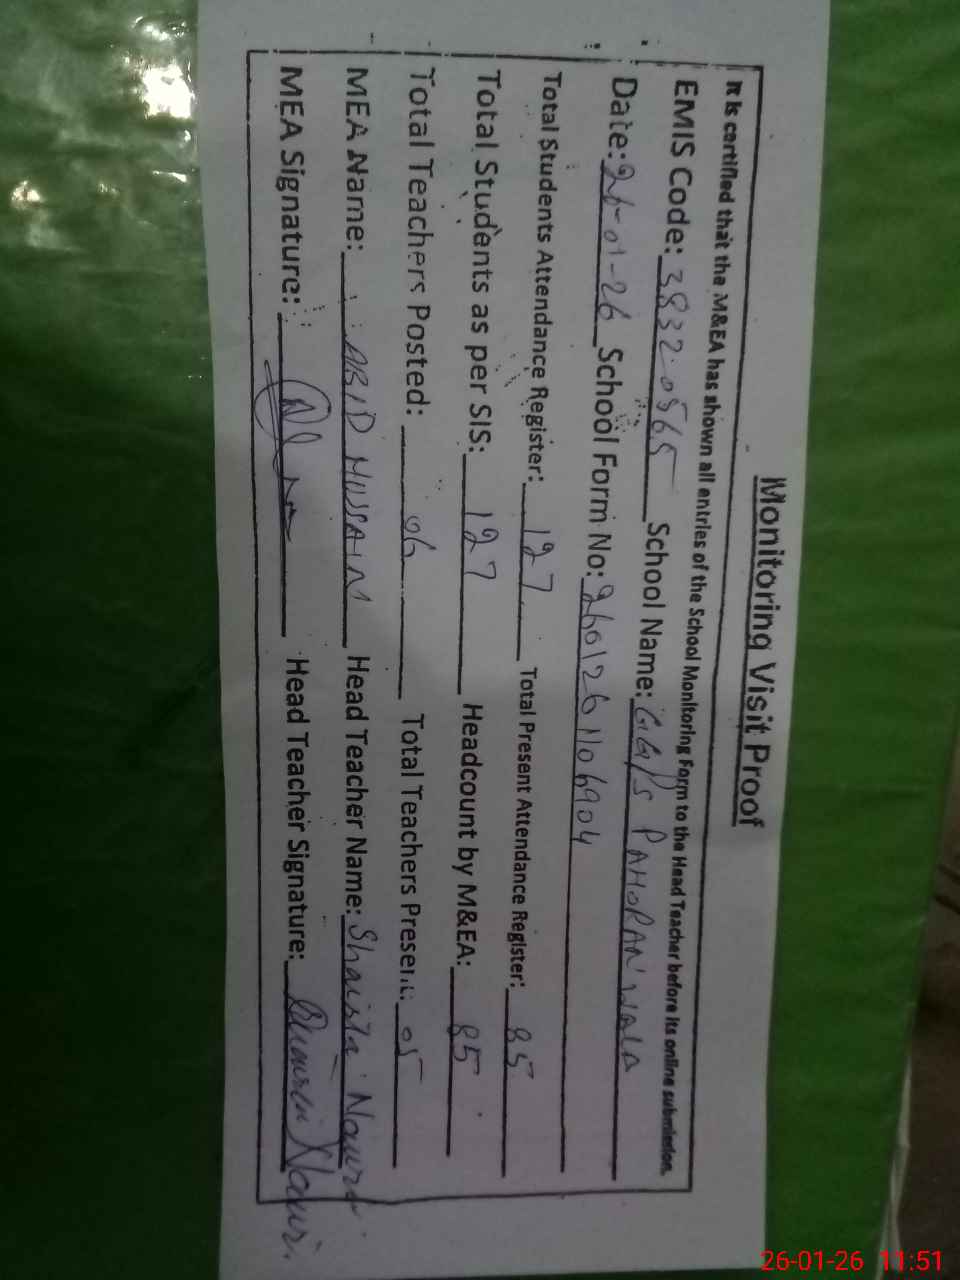 Monitoring Visit Proof
It is certified that the M&EA has shown all entries of the School Monitoring Form to the Head Teacher before its online submission.
EMIS Code: 38320565 School Name: GGPS PAHORANWALA
Date: 26-01-26 School Form No: 2601261106904
Total Students Attendance Register: 127 Total Present Attendance Register: 85
Total Students as per SIS: 127 Headcount by M&EA: 85
Total Teachers Posted: 06 Total Teachers Present: 05
MEA Name: ABID HUSSAIN Head Teacher Name: Shaista
MEA Signature: Head Teacher Signature:
26-01-26 11:51